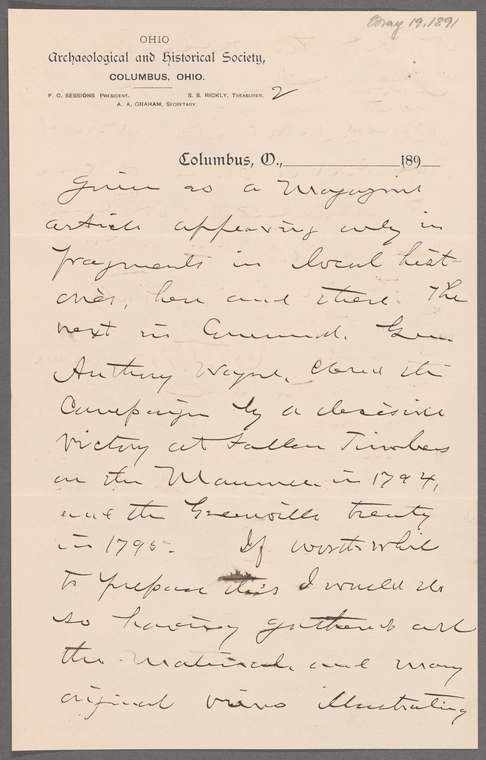 May 19, 1891
OHIO
Archaeological and Historical Society,
COLUMBUS, OHIO.
F. C. SESSIONS PRESIDENT. S. S. RICKLY, TREASURER. 2
A. A. GRAHAM, SECRETARY.
Columbus, O., 189
Given as a Magazine
article appearing only in
fragments in local hist
ories, here and there. The
next in Command, Gen.
Anthony Wayne, closed the
Campaign by a decisive
victory at Fallen Timbers
on the Maumee in 1794,
and the Greenville treaty
in 1795. If worth while
to prepare this I would do
so having gathered all
the materials and many
original views illustrating